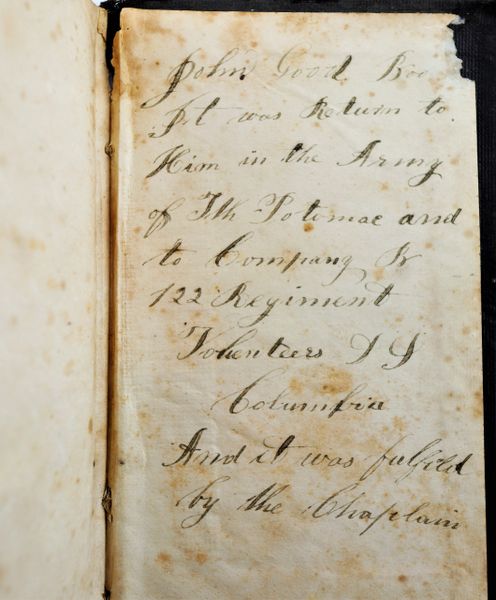 John Good Boo
It was Return to
Him in the Army
of Th Potomac and
to Company
122 Regiment
Volenteers
Columbia
And it was fulfild
by the Chaplain